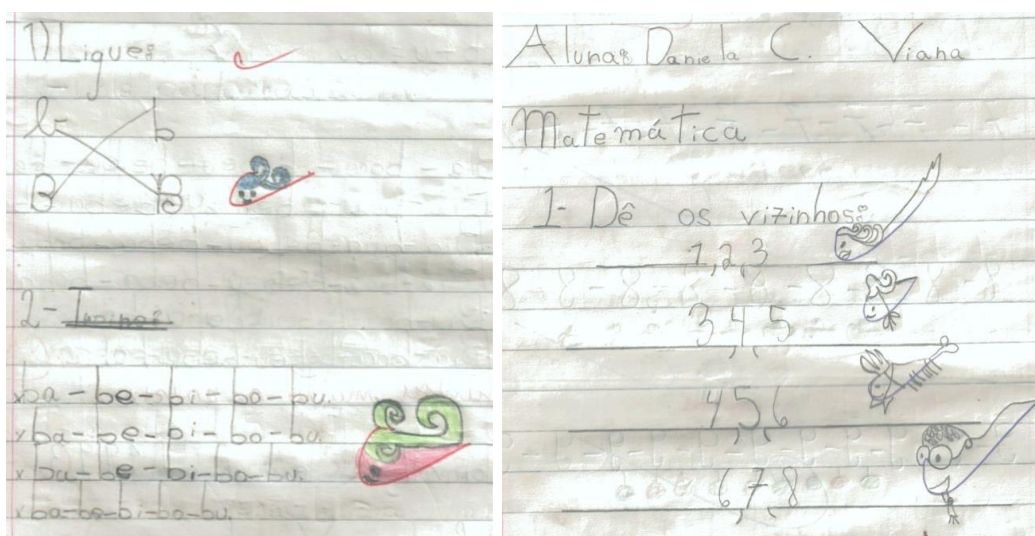 1) Ligue:
b b
B B
2-
ba-be-bi-bo-bu.
ba-be-bi-bo-bu.
ba-be-bi-bo-bu.
ba-be-bi-bo-bu.
Aluna: Daniela C. Viana
Matemática
1- Dê os vizinhos:
1,2,3
3,4,5
4,5,6
6,7,8